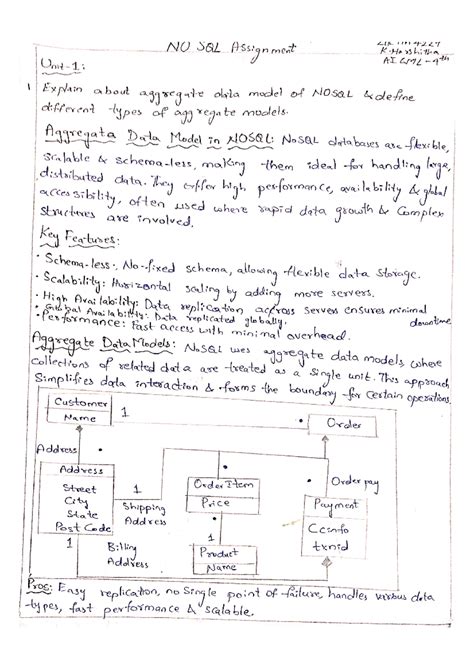 NO SQL Assignment
K. Harshitha
AI & ML - 4th
Unit-1:
1 Explain about aggregate data model of NOSQL & define
different types of aggregate models.
Aggregata Data Model in NOSQL: NoSQL databases are flexible,
Scalable & schema-less, making them ideal for handling large,
distributed data. They offer high, performance, availability & global
accessibility, often used where rapid data growth & Complex
Structures are involved.
Key Features:
• Schema-less: No-fixed schema, allowing flexible data storage.
• Scalability: Horizontal scaling by adding more servers.
• High Availability: Data replication across servers ensures minimal
downtime
• Global Availability: Data replicated globally.
• Performance: Fast access with minimal overhead.
Aggregate Data Models: NoSQL uses aggregate data models, where
collections of related data are treated as a Single unit. This approach
Simplifies data interaction & forms the boundary for certain operations.
Customer
Name
1
Order
Address
Address
Street
City
State
Post Code
1
Shipping
Address
Order Item
Price
Order pay
Payment
CCinfo
txnid
1
Billing
Address
1
Product
Name
Pros: Easy replication, no Single point of failure, handles various data
-types, fast performance & scalable.